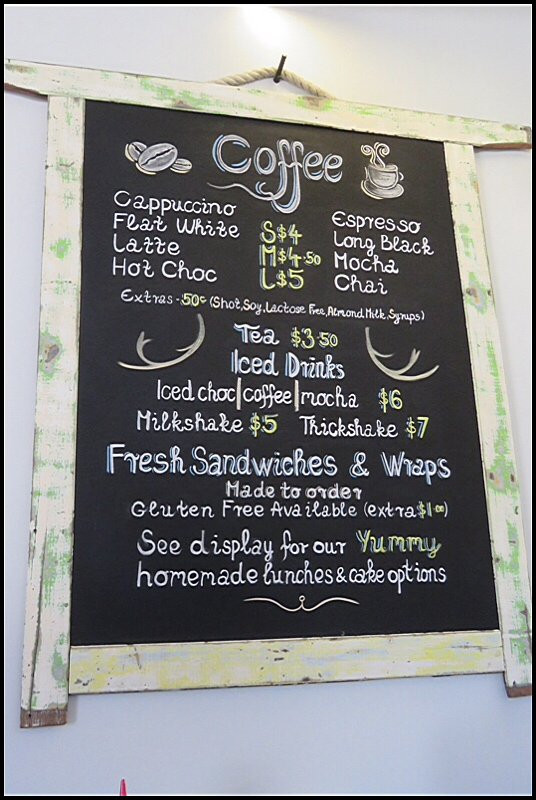 Coffee
Cappuccino
Flat White
Latte
Hot Choc
S $4
M $4.50
L $5
Espresso
Long Black
Mocha
Chai
Extras - 50c (Shot, Soy, Lactose Free, Almond Milk, Syrups)
Tea $3.50
Iced Drinks
Iced choc | coffee | mocha $6
Milkshake $5 Thickshake $7
Fresh Sandwiches & Wraps
Made to order
Gluten Free Available (extra $1.00)
See display for our Yummy
homemade lunches & cake options